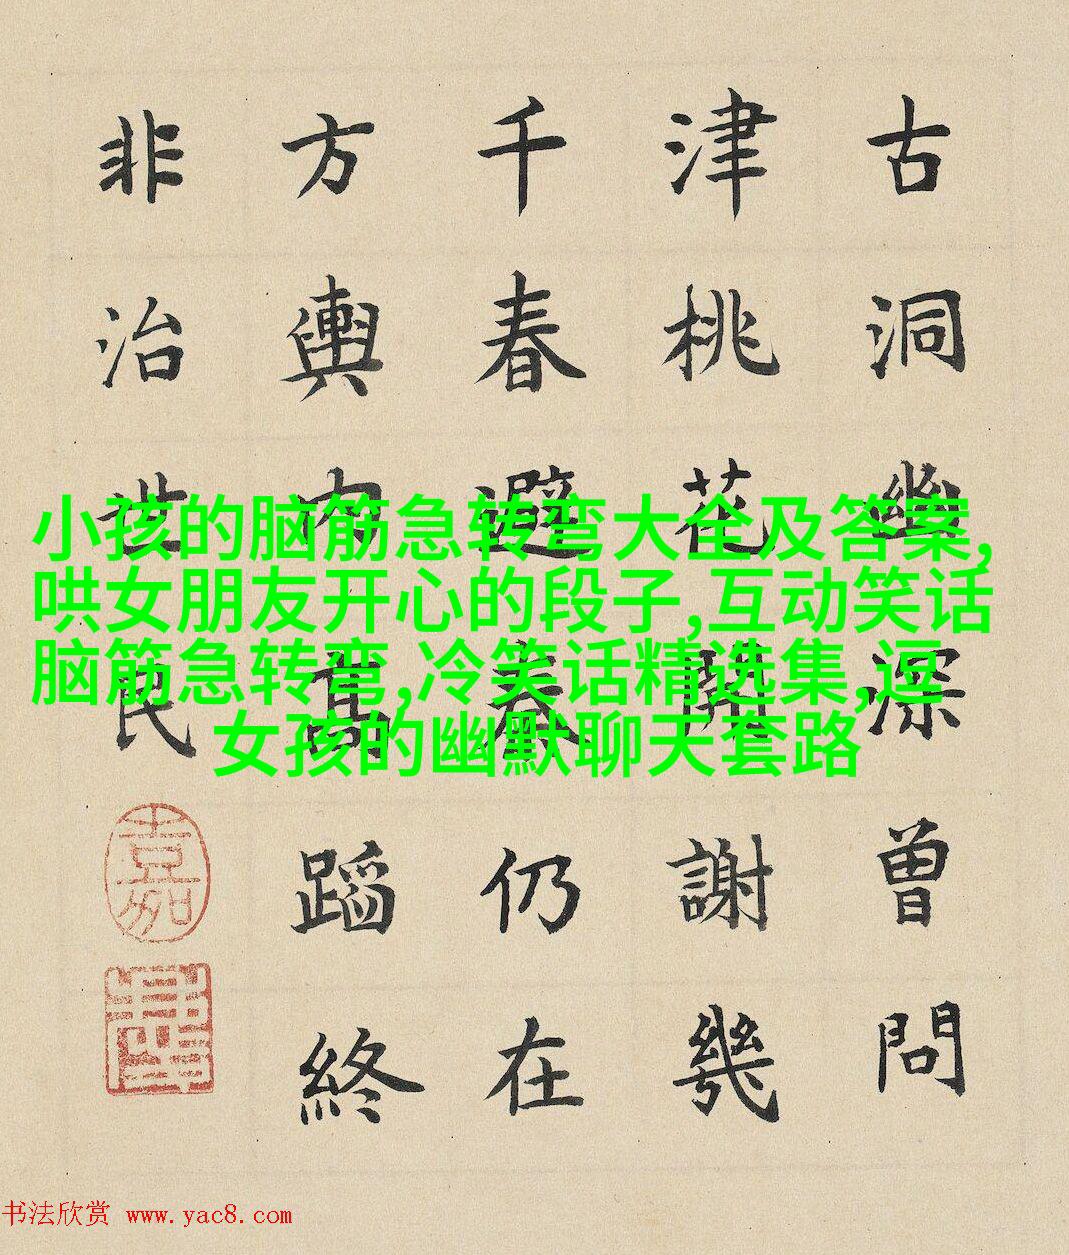 古洞幽深曾問
津桃花開謝幾
千春避秦仍在
方輿内高蹈終
非治世民
小孩的脑筋急转弯大全及答案,
哄女朋友开心的段子,互动笑话
脑筋急转弯,冷笑话精选集,逗
女孩的幽默聊天套路
书法欣赏 www.yac8.com